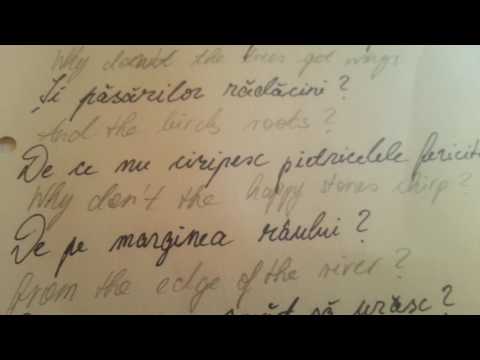 Why doesn't the trees got wings
Și păsărilor rădăcini?
And the birds roots?
De ce nu ciripesc pidricelele fericite
Why don't the happy stones chirp?
De pe marginea râului?
From the edge of the river?
să urăsc?